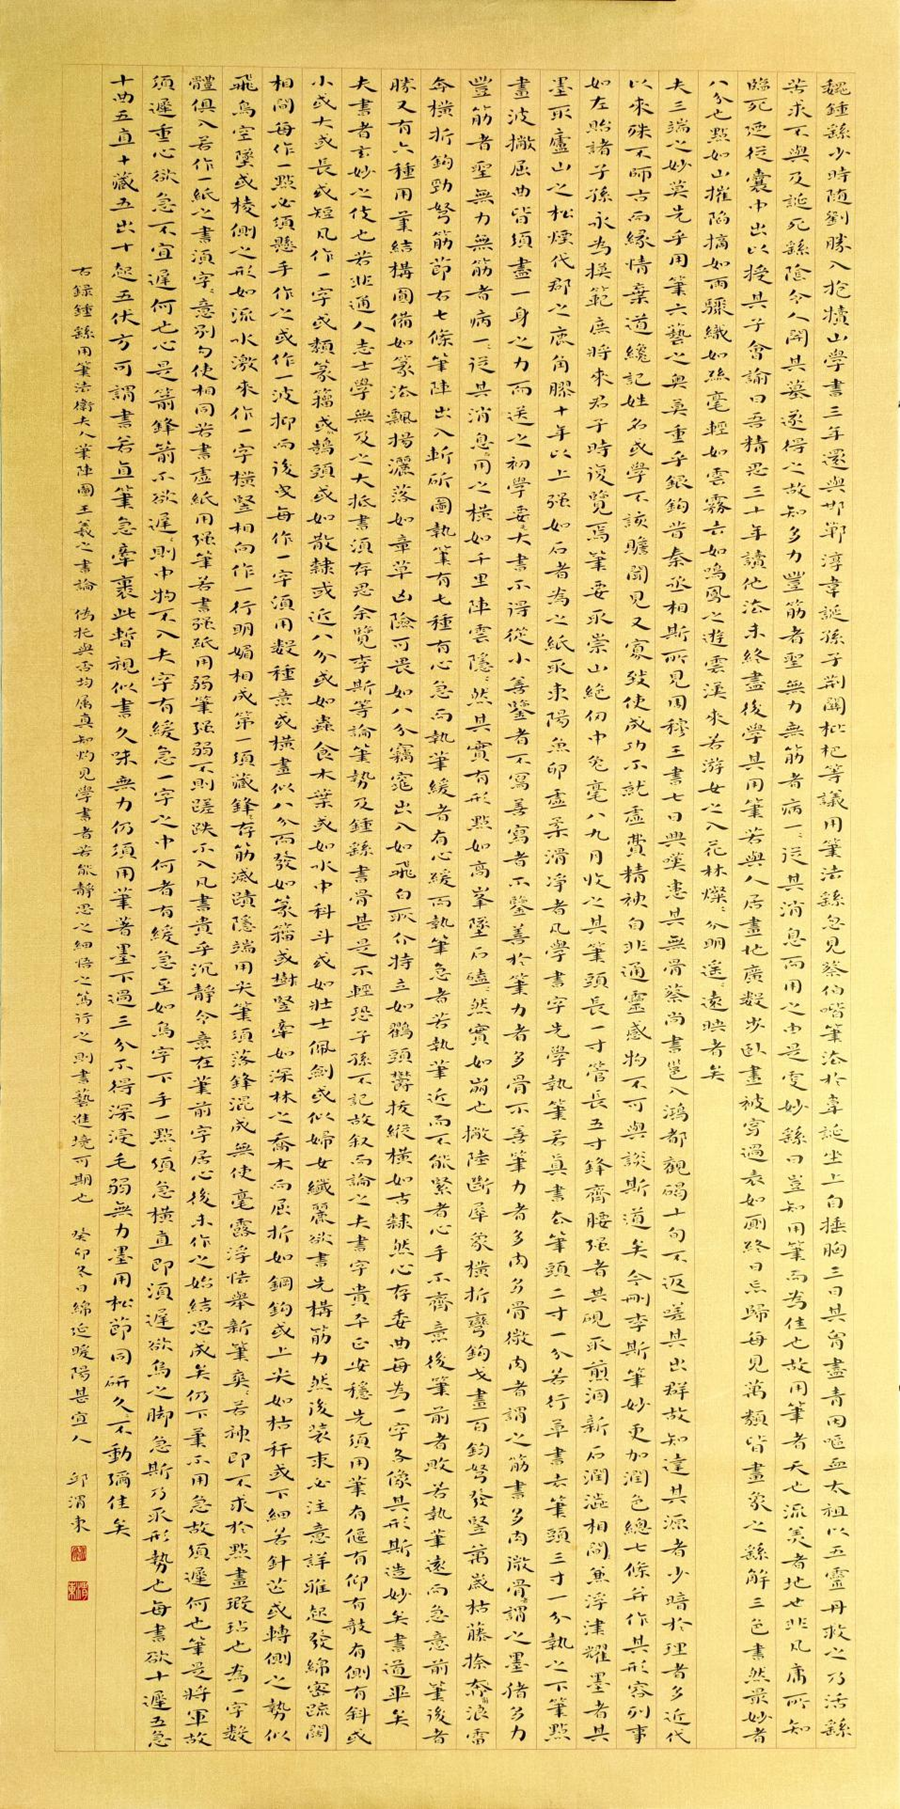 魏鍾繇少時随劉勝入抱犢山學書三年還與邯鄲淳韋誕孫子荆關枇杷等議用筆法繇忽見蔡伯喈筆法於韋誕坐上自捶胸三日其胷盡青因嘔血太祖以五靈丹救之乃活繇
苦求不與及誕死繇陰令人開其墓遂得之故知多力豐筋者聖無力無筋者病一〻從其消息而用之由是更妙繇曰豈知用筆而為佳也故用筆者天也流美者地也非凡庸所知
臨死乃從囊中出以授其子會諭曰吾精思三十年讀他法未終盡後學其用筆若與人居畫地廣數步卧畫被穿過表如厠終日忘歸每見萬類皆畫象之繇解三色書然最妙者
八分也點如山摧陷摘如雨驟纖如絲毫輕如雲霧去如鳴鳳之遊雲漢來若游女之入花林燦〻分明遥〻遠映者矣
夫三端之妙莫先乎用筆六藝之奥莫重乎銀鉤昔秦丞相斯所見周穆王書七日興嘆患其無骨蔡尚書邕入鴻都觀碣十旬不返嗟其出群故知達其源者少暗於理者多近代
以來殊不師古而緣情棄道纔記姓名或學不該贍聞見又寡致使成功不就虚費精神自非通靈感物不可與談斯道矣今刪李斯筆妙更加潤色總七條并作其形容列事
如左貽諸子孫永為模範庶將來君子時復覽焉筆要取崇山絶仞中兔毫八九月收之其筆頭長一寸管長五寸鋒齊腰强者其硯取煎涸新石潤澁相兼浮津耀墨者其
墨取廬山之松煙代郡之鹿角膠十年以上强如石者為之紙取東陽魚卵虚柔滑淨者凡學書字先學執筆若真書去筆頭二寸一分若行草書去筆頭三寸一分執之下筆點
畫波撇屈曲皆須盡一身之力而送之初學要〻大書不得從小善鑒者不寫善寫者不鑒善於筆力者多骨不善筆力者多肉多骨微肉者謂之筋書多肉微骨者謂之墨猪多力
豐筋者聖無力無筋者病一〻從其消息用之横如千里陣雲隱〻然其實有形點如高峯墜石磕〻然實如崩也撇陸斷犀象横折彎鉤戈畫百鈞弩發竪萬歲枯藤捺奔浪雷
奔横折鉤勁弩筋節右七條筆陣出入斬斫圖執筆有七種有心急而執筆緩者有心緩而執筆急者若執筆近而不能緊者心手不齊意後筆前者敗若執筆遠而急意前筆後者
勝又有六種用筆結構圓備如篆法飄揚灑落如章草凶險可畏如八分窈窕出入如飛白孤介特立如鶴頭鬱拔縱横如古隸然心存委曲每為一字各像其形斯造妙矣書道畢矣
夫書者玄妙之伎也若非通人志士學無及之大抵書須存思余覽李斯等論筆勢及鍾繇書骨甚是不輕恐子孫不記故叙而論之夫書字貴平正安穩先須用筆有偃有仰有欹有側有斜或
小或大或長或短凡作一字或類篆籀或鵠頭或如散隸或近八分或如蟲食木葉或如水中科斗或如壯士佩劍或似婦女纖麗欲書先構筋力然後装束必注意詳雅起發綿密疏闊
相間每作一點必須懸手作之或作一波抑而後曳每作一字須用數種意或横畫似八分而發如篆籀或樹竪牽如深林之喬木而屈折如鋼鉤或上尖如枯稈或下細若針芒或轉側之勢似
飛鳥空墜或棱側之形如流水激來作一字横竪相向作一行明媚相成第一須藏鋒存筋滅蹟隱端用尖筆須落鋒混成無使毫露浮怯舉新筆爽〻若神即不求於點畫瑕玷也為一字數
體俱入若作一紙之書須字〻意别勿使相同若書虚紙用强筆若書强紙用弱筆强弱不則蹉跌不入凡書貴乎沉靜令意在筆前字居心後未作之始結思成矣仍下筆不用急故須遲何也筆是將軍故
須遲重心欲急不宜遲何也心是箭鋒箭不欲遲〻則中物不入夫字有緩急一字之中何者有緩急至如烏字下手一點〻須急横直即須遲欲烏之脚急斯乃取形勢也每書欲十遲五急
十曲五直十藏五出十起五伏方可謂書若直筆急牽裹此暫視似書久味無力仍須用筆著墨下過三分不得深浸毛弱無力墨用松節同研久〻不動彌佳矣
右録鍾繇用筆法衛夫人筆陣圖王羲之書論 偽托與否均属真知灼見學書者若能静思之細悟之篤行之則書藝進境可期也 癸卯冬日綿延暖陽甚宜人 邱渭東